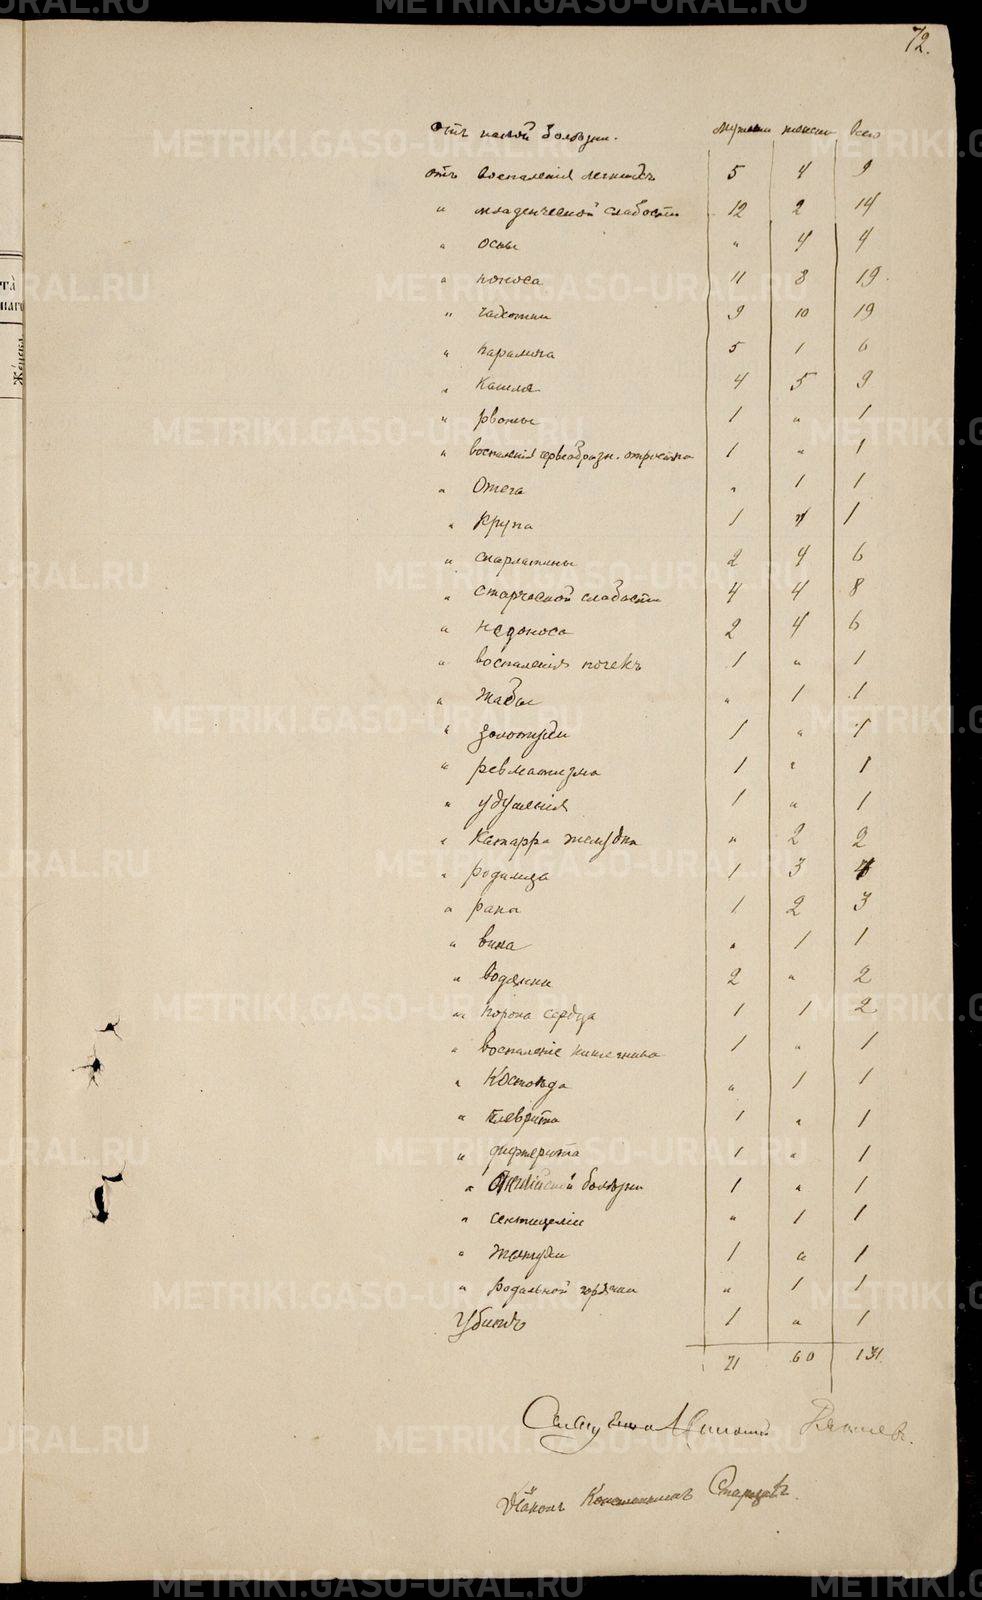 72.
отъ какой болѣзни. мужеск женск всего
отъ воспаленія легкихъ 5 4 9
" младенческой слабости 12 2 14
" оспы " 4 4
" поноса 11 8 19
" чахотки 9 10 19
" паралича 5 1 6
" кашля 4 5 9
" рвоты 1 " 1
" воспаленія червеобразн. отростка 1 " 1
" Отека " 1 1
" Крупа 1 " 1
" скарлатины 2 4 6
" старческой слабости 4 4 8
" недоноса 2 4 6
" воспаленія почекъ 1 " 1
" жабы " 1 1
" золотухи 1 " 1
" ревматизма 1 " 1
" удушенія 1 " 1
" Катарра желудка " 2 2
" родимца 1 3 4
" рака 1 2 3
" вина " 1 1
" водянки 2 " 2
" порока сердца 1 1 2
" воспаленіе кишечника 1 " 1
" Костоѣда " 1 1
" плеврита 1 " 1
" дифтерита 1 " 1
" Англійской болѣзни 1 " 1
" " 1 1
" желтухи 1 " 1
" родильной горячки " 1 1
Убитъ 1 " 1
71 60 131
Діаконъ Константинъ Старцевъ.
та̀
наго
Же́нска
METRIKI.GASO-URAL.RU